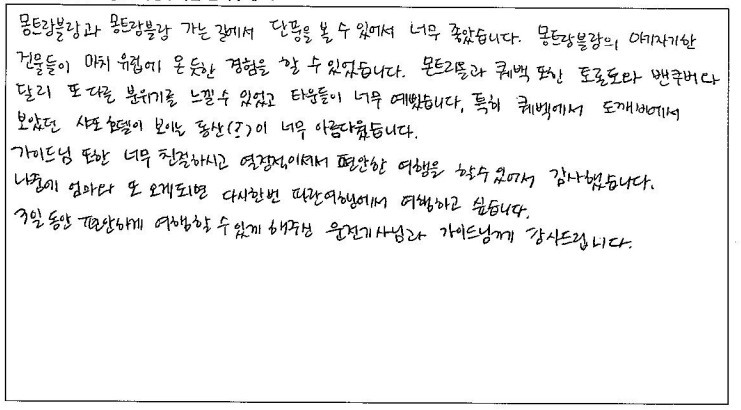 몽트랑블랑과 몽트랑블랑 가는 길에서 단풍을 볼 수 있어서 너무 좋았습니다. 몽트랑블랑의 아기자기한
건물들이 마치 유럽에 온 듯한 경험을 할 수 있었습니다. 몬트리올과 퀘백 또한 토론토와 밴쿠버와
달리 또 다른 분위기를 느낄 수 있었고 타운들이 너무 예뻤습니다. 특히 퀘백에서 도깨비에서
보았던 샤또 호텔이 보이는 동산(?)이 너무 아름다웠습니다.
가이드님 또한 너무 친절하시고 열정적이셔서 편안한 여행을 할 수 있어서 감사했습니다.
나중에 엄마와 또 오게되면 다시한번 파란여행에서 여행하고 싶습니다.
3일 동안 편안하게 여행할 수 있게 해주신 운전기사님과 가이드님께 감사드립니다.